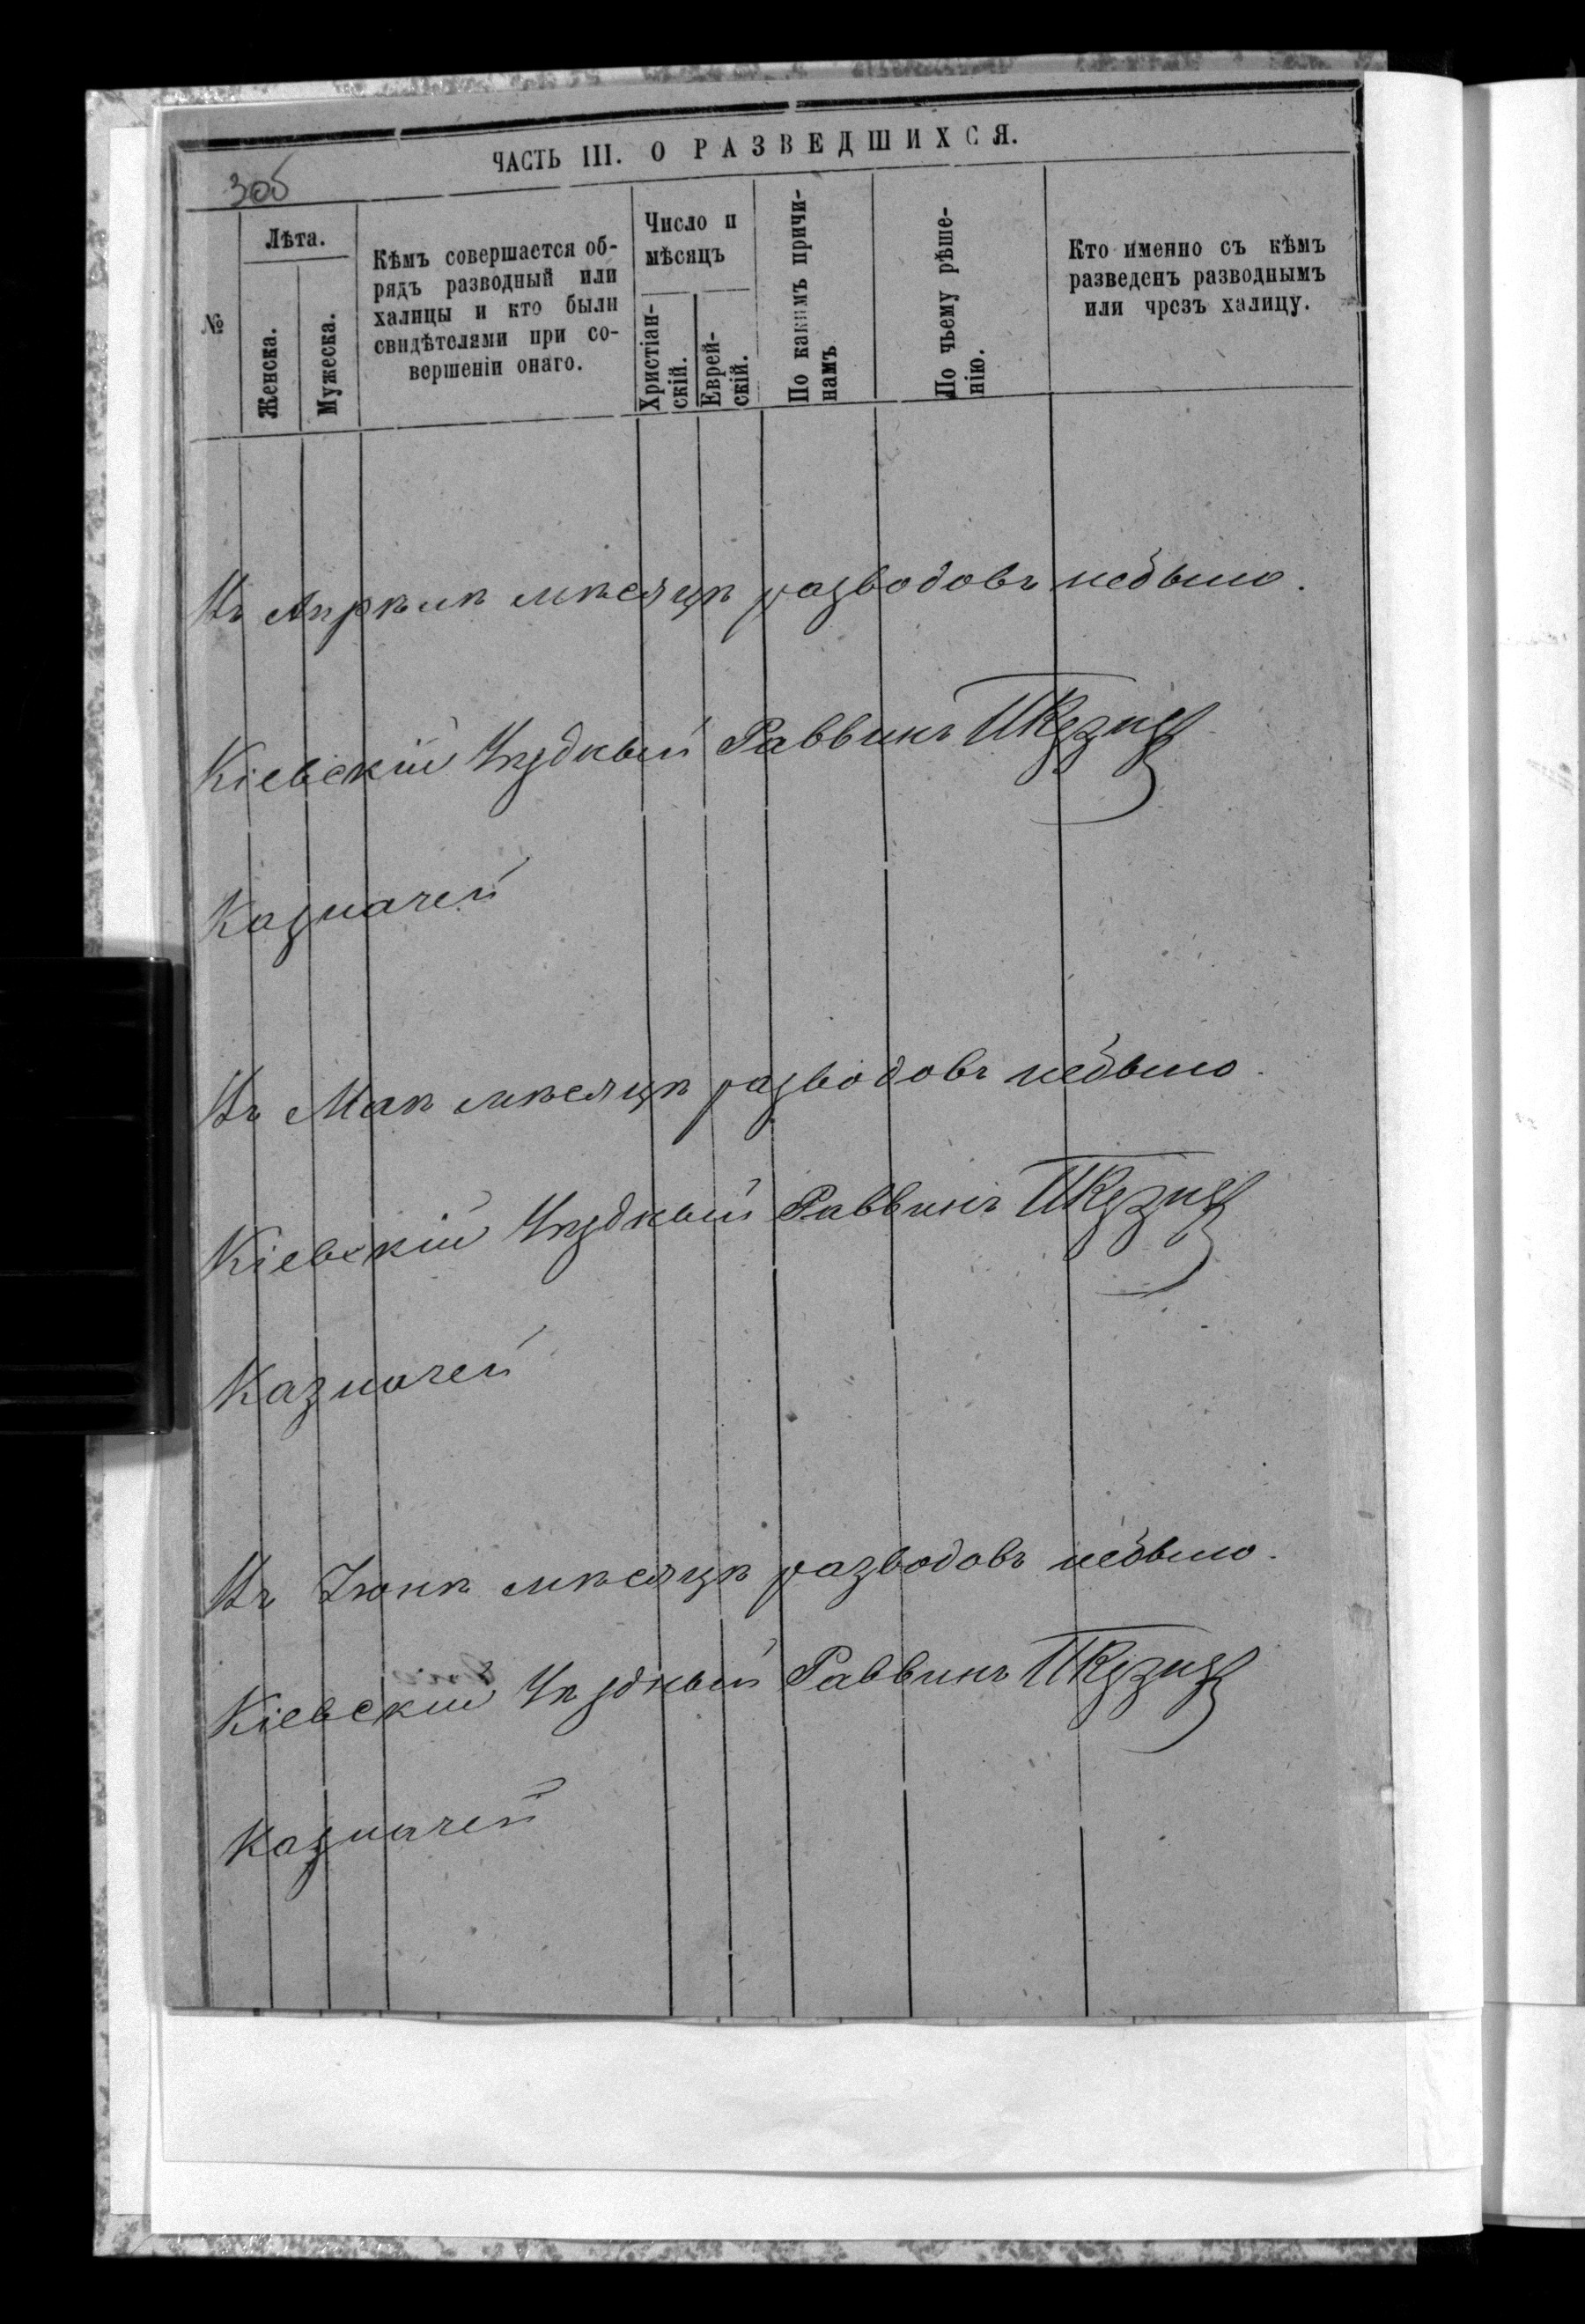 ЧАСТЬ III. О РАЗВЕДШИХСЯ.
№
Лѣта.
Женска.
Мужеска.
Кѣмъ совершается об-
рядъ разводный или
халицы и кто были
свидѣтелями при со-
вершеніи онаго.
Число и
мѣсяцъ
Христіан-
скій.
Еврей-
скій.
По какимъ причи-
намъ
По чьему рѣше-
нію.
Кто именно съ кѣмъ
разведенъ разводнымъ
или чрезъ халицу.
Въ Апрѣлѣ мѣсяцѣ разводовъ небыло.
Кіевскій Уѣздный Раввинъ
Казначей
Въ Маѣ мѣсяцѣ разводовъ небыло.
Кіевскій Уѣздный Раввинъ
Казначей
Въ Іюнѣ мѣсяцѣ разводовъ небыло.
Кіевскій Уѣздный Раввинъ
Казначей